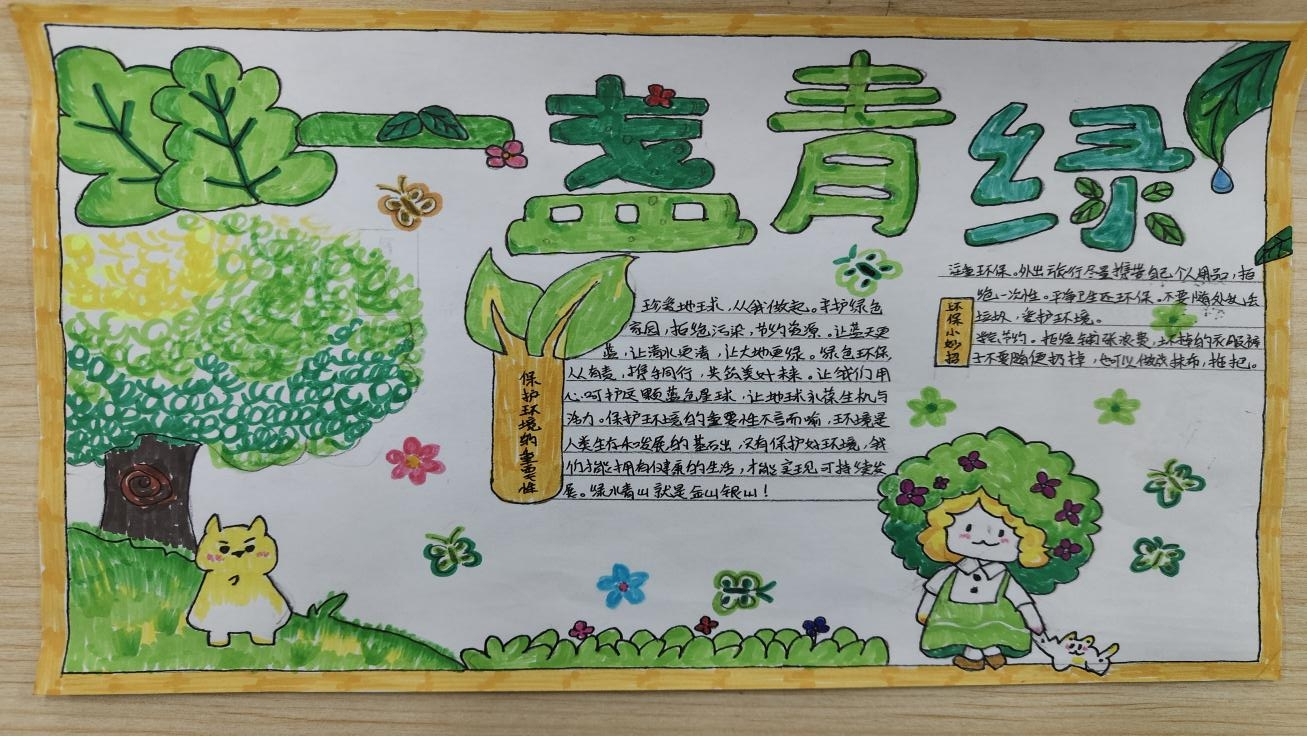 一盏青绿
保护环境的重要性
珍爱地球，从我做起。守护绿色
家园，拒绝污染，节约资源。让蓝天更
蓝，让清水更清，让大地更绿。绿色环保
人人有责，携手同行，共筑美好未来。让我们用
心呵护这颗蓝色星球，让地球永葆生机与
活力。保护环境的重要性不言而喻，环境是
人类生存和发展的基础，只有保护好环境，我
们才能拥有健康的生活，才能实现可持续发
展。绿水青山就是金山银山！
环保小妙招
注重环保。外出旅行尽量携带自己个人用品，拒
绝一次性。干净卫生还环保。不要随处乱丢
垃圾，爱护环境。
节约。拒绝铺张浪费，坏掉的衣服裤
子不要随便扔掉，也可以做成抹布，拖把。